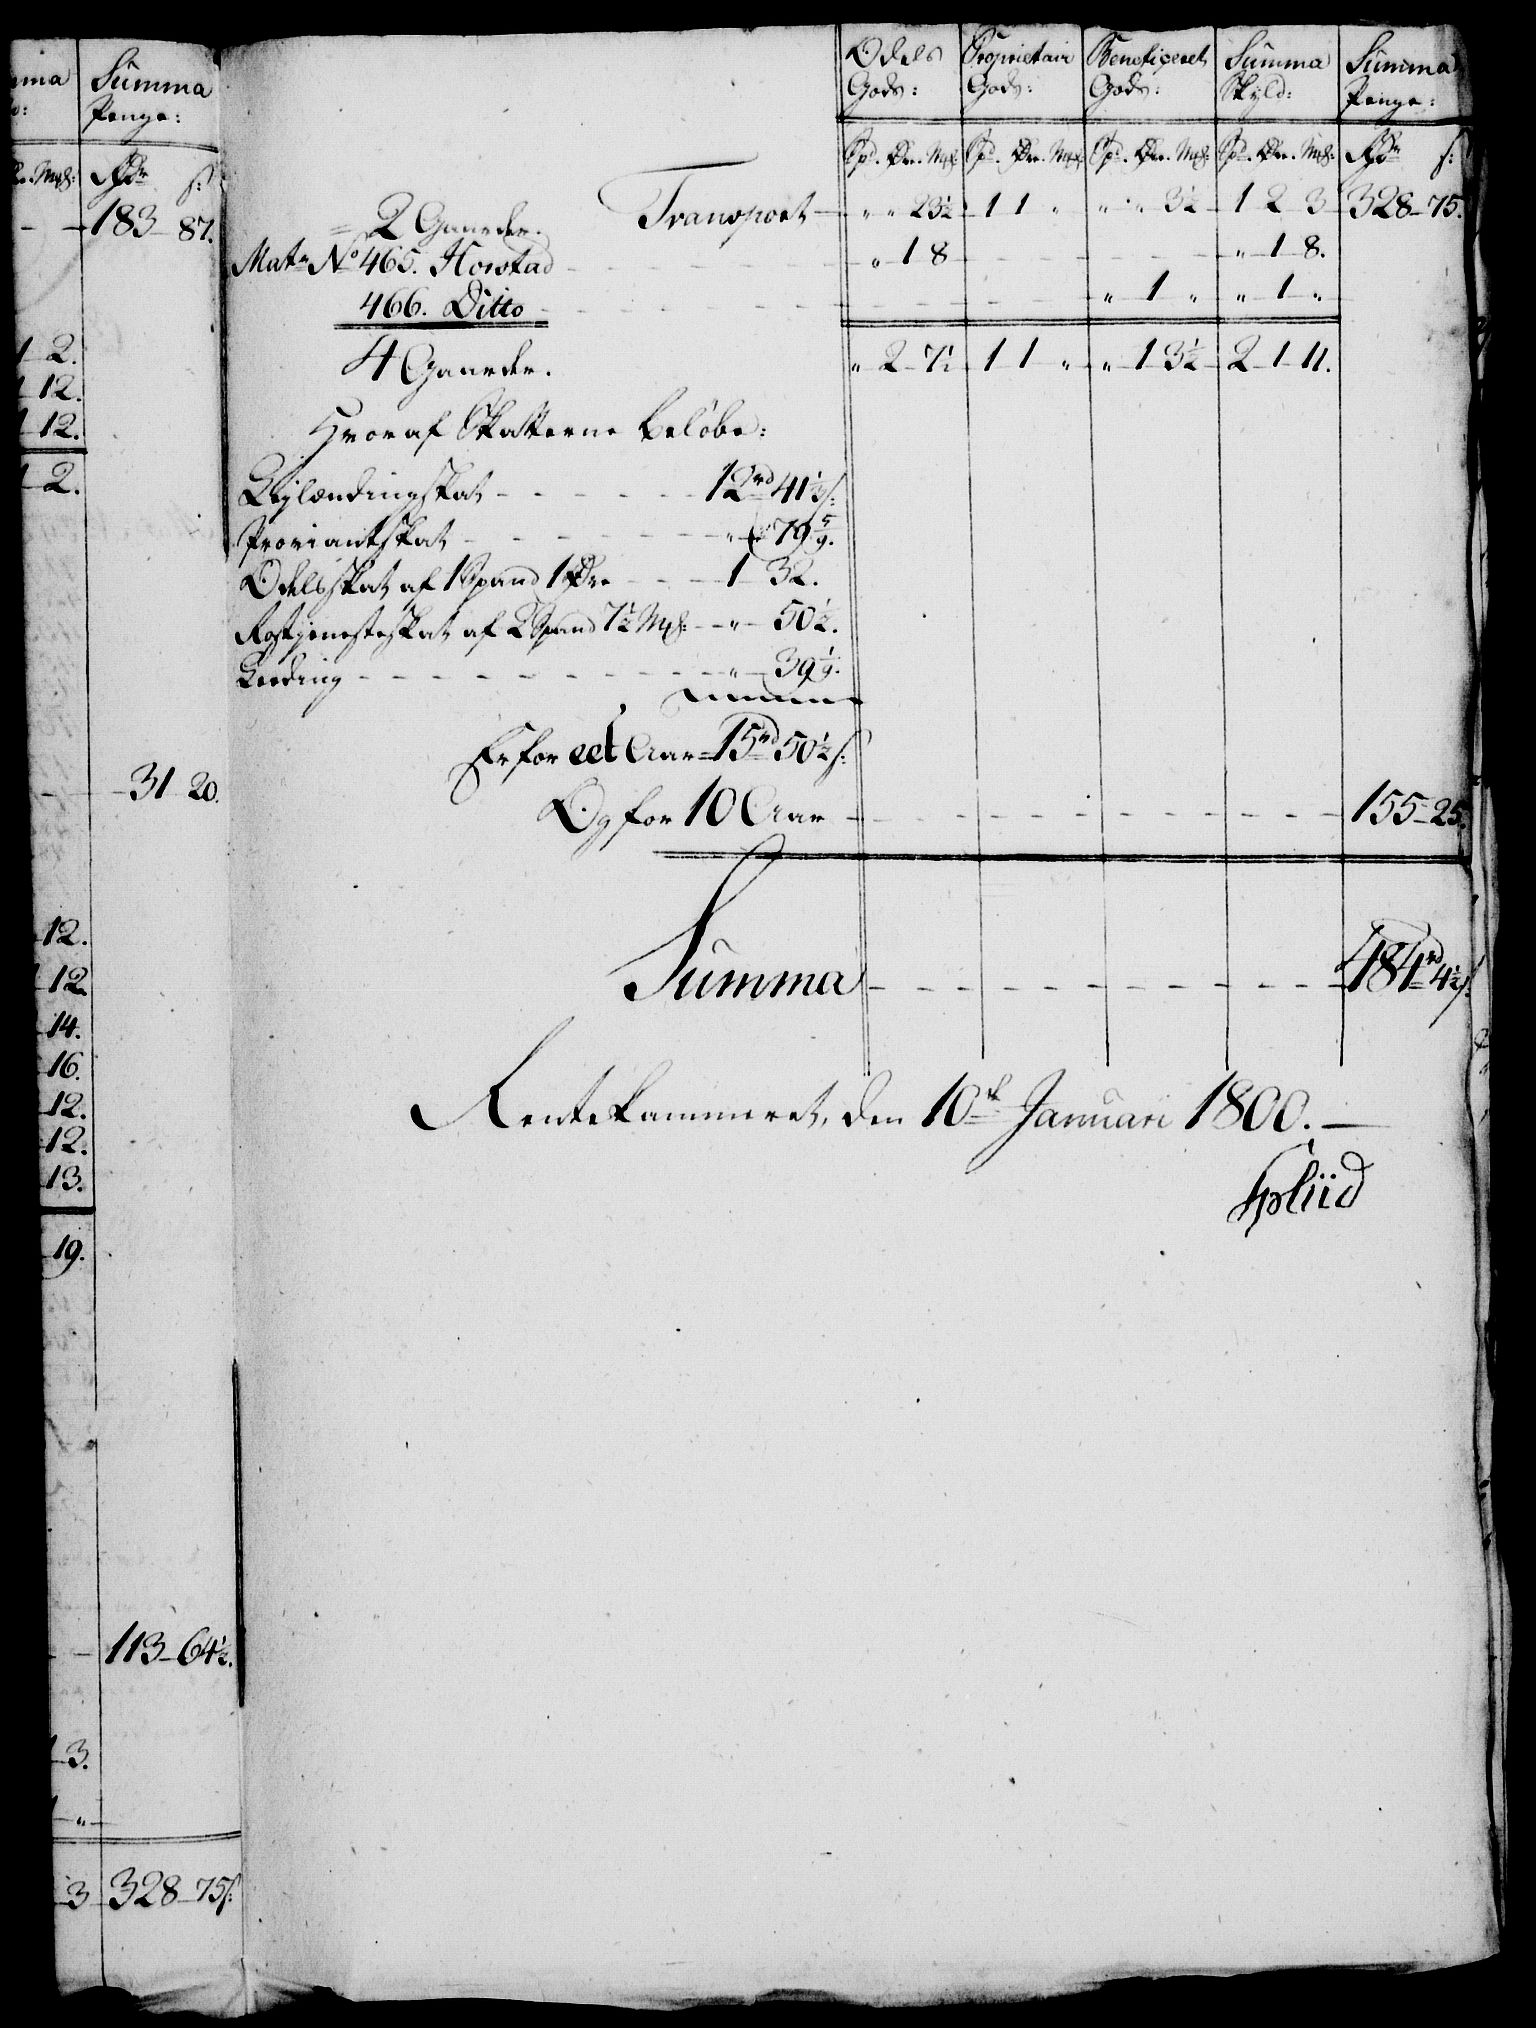 Summa
Penge:
Rdr s:
183 87.
1 2.
12.
12.
1 2.
31 20.
12.
12
14.
16.
12.
12.
13.
19.
113 64½.
3.
3 328 75s:
Odels Gods: Proprietair Gods: Beneficeret Gods: Summa Skyld: Summa Penge:
Spd. Øre. Mp: Spd. Øre. Mp: Spd. Øre. Mp: Spd. Øre. Mp: Rdr s:
2 Gaarder. Transport " " 23½ 1 1 " " " 3½ 1 2 3 328 75.
Matr No 465. Howstad " 1 8 " 1 8.
466. Ditto " 1 " " 1 "
4 Gaarder. " 2 7½ 1 1 " " 1 3½ 2 1 11.
Hvoraf Skatterne beløbe:
Leylændingskat 12rd 41⅓s:
Proviantskat " 79 5/9.
Odelsskat af 1 Spand 1 Øre 1 32.
Rostjenesteskat af 2 Spand 7½ Mp: " 50½.
Leeding " 39 1/9.
Er for eet Aar 15rd 50½s:
Og for 10 Aar 155 25.
Summa 484rd 4½s:
Rentekammeret, den 10de Januari 1800.
Spliid